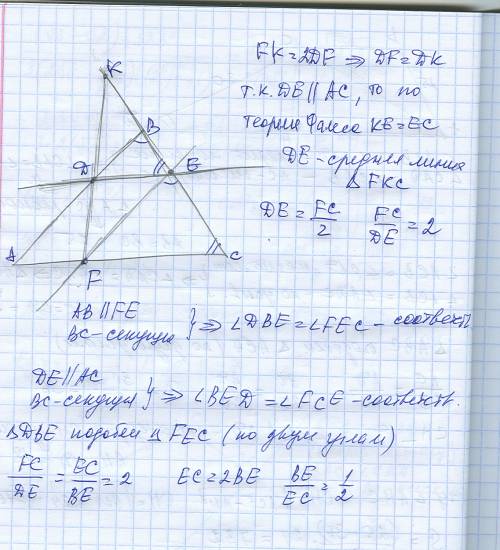 K
B
D
E
A
C
F
FK = 2DF => DF = DK
т.к. DE || AC, то по
теории Фалеса KE = EC
DE - средняя линия
△FKC
DE = FC/2 FC/DE = 2
AB || FE
BC - секущая } => ∠DBE = ∠FEC - соответств
DE || AC
BC - секущая } => ∠BED = ∠FCE - соответств.
△DBE подобен △ FEC (по двум углам)
FC/DE = EC/BE = 2 EC = 2BE BE/EC = 1/2